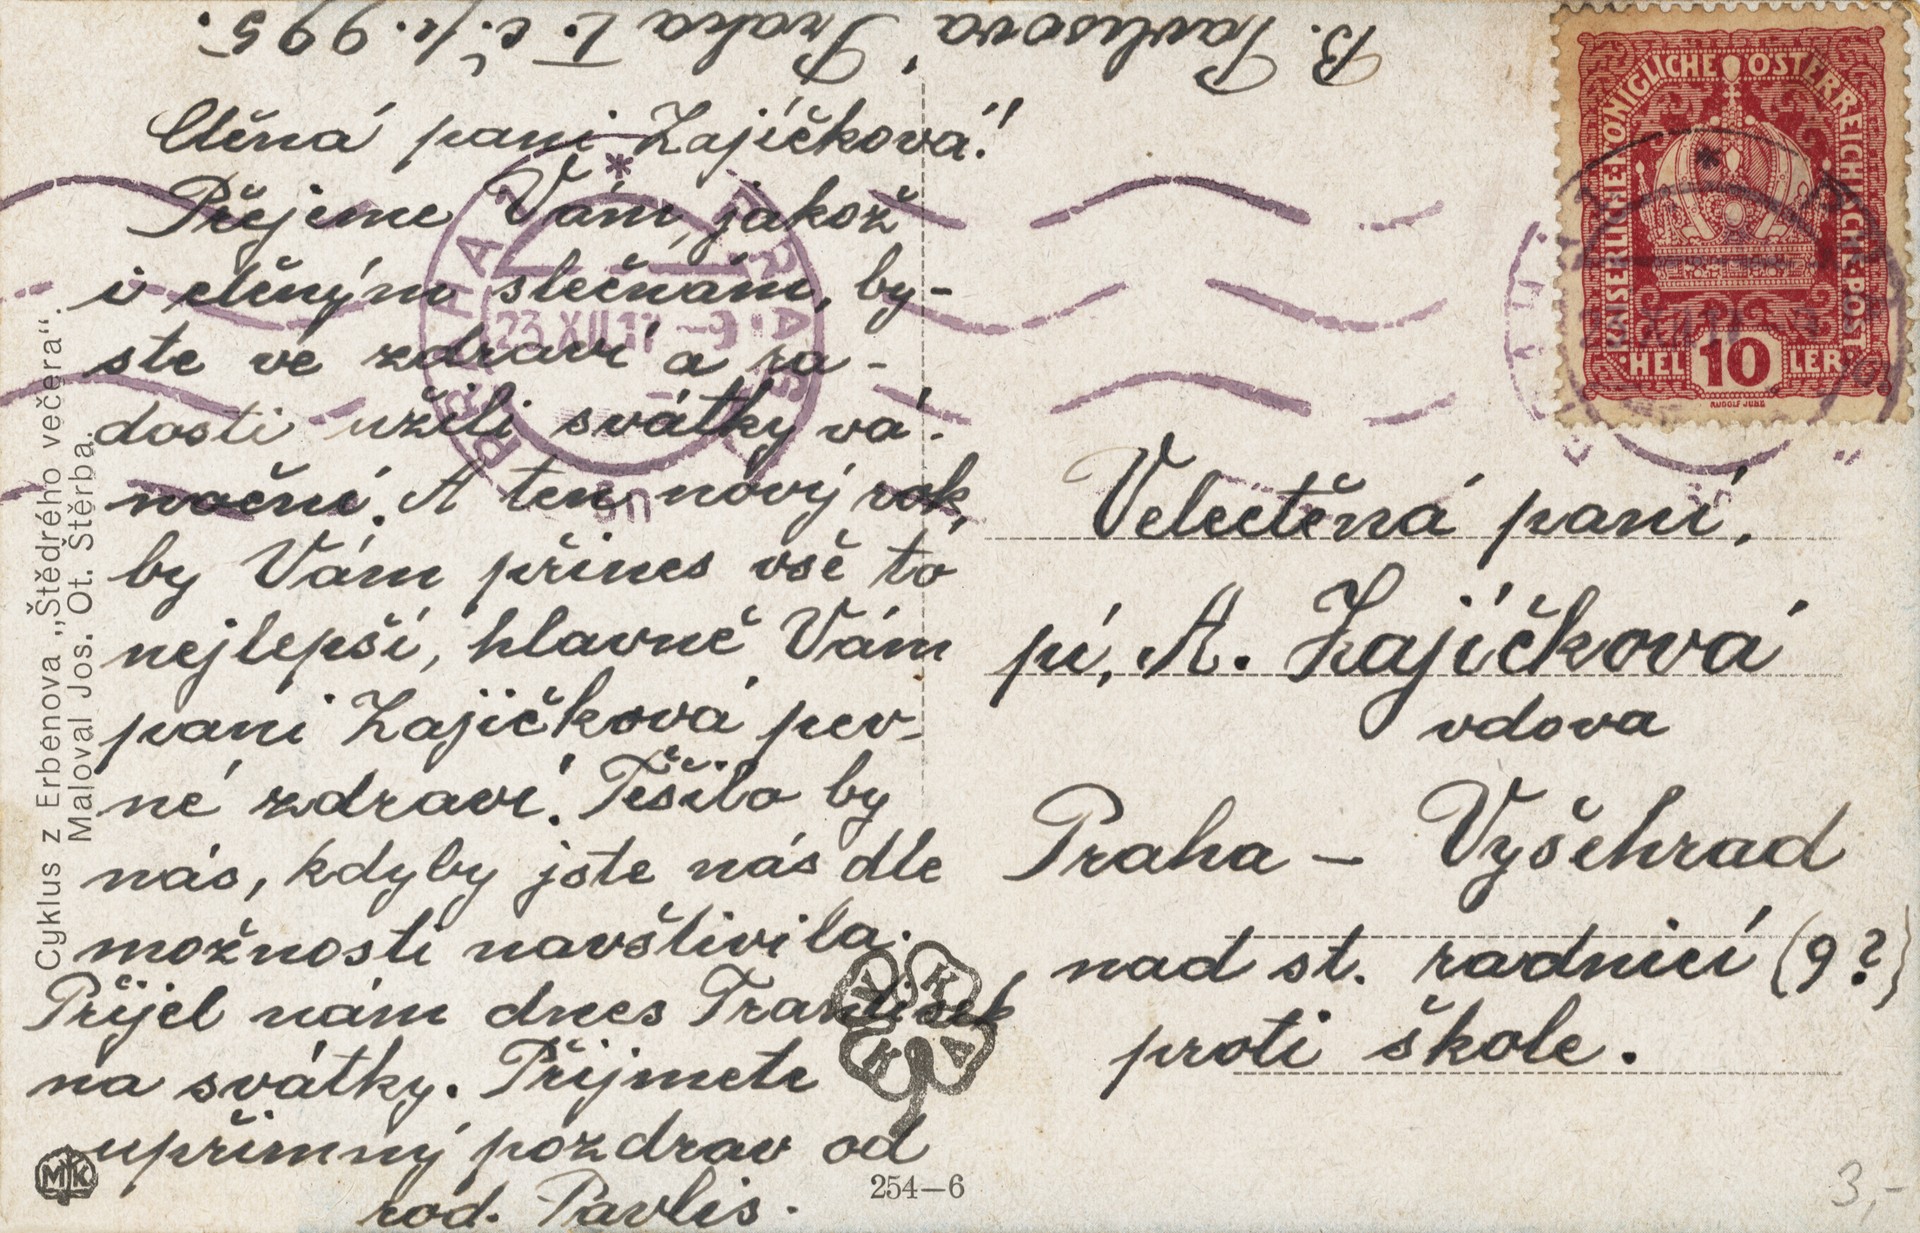 B. Pavlisova, Praha I. č. p. 995.
Ctěná pani Zajíčková!
Přejeme Vám, jakož
i ctěným slečnám, by-
ste ve zdraví a ra-
dosti užili svátky vá-
noční. A ten nový rok,
by Vám přines vše to
nejlepší, hlavně Vám
pani Zajíčková pev-
né zdraví. Těšilo by
nás, kdyby jste nás dle
možnosti navštívila.
Přijel nám dnes František
na svátky. Přijmete
upřímný pozdrav od
rod. Pavlis.
Cyklus z Erbenova „Štědrého večera“.
Maloval Jos. Ot. Štěrba.
KAISERLICHE KÖNIGLICHE ÖSTERREICHISCHE POST
HEL 10 LER
RUDOLF JUNK
23.XII.17 -9
Velectěná paní,
pí, A. Zajíčková
vdova
Praha – Vyšehrad
nad st. radnicí (9?)
proti škole.
V K K A
MK
254–6
3,-